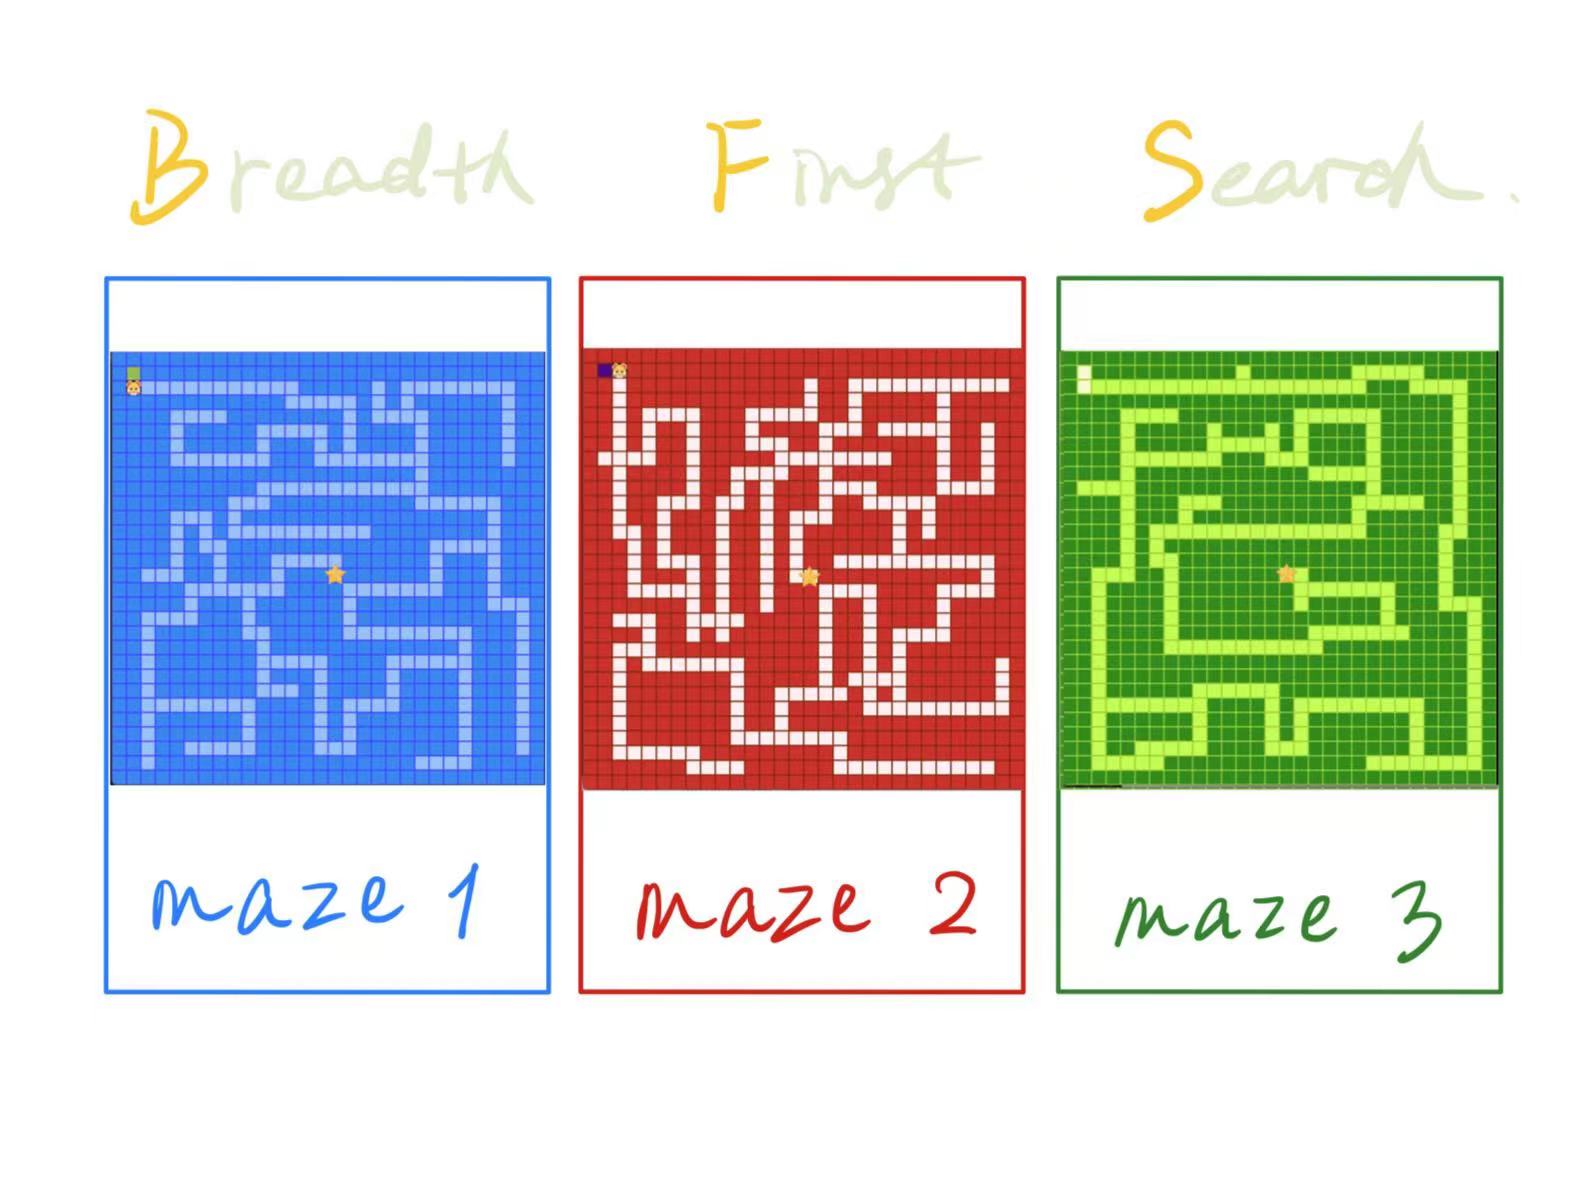 Breadth First Search.
maze 1
maze 2
maze 3